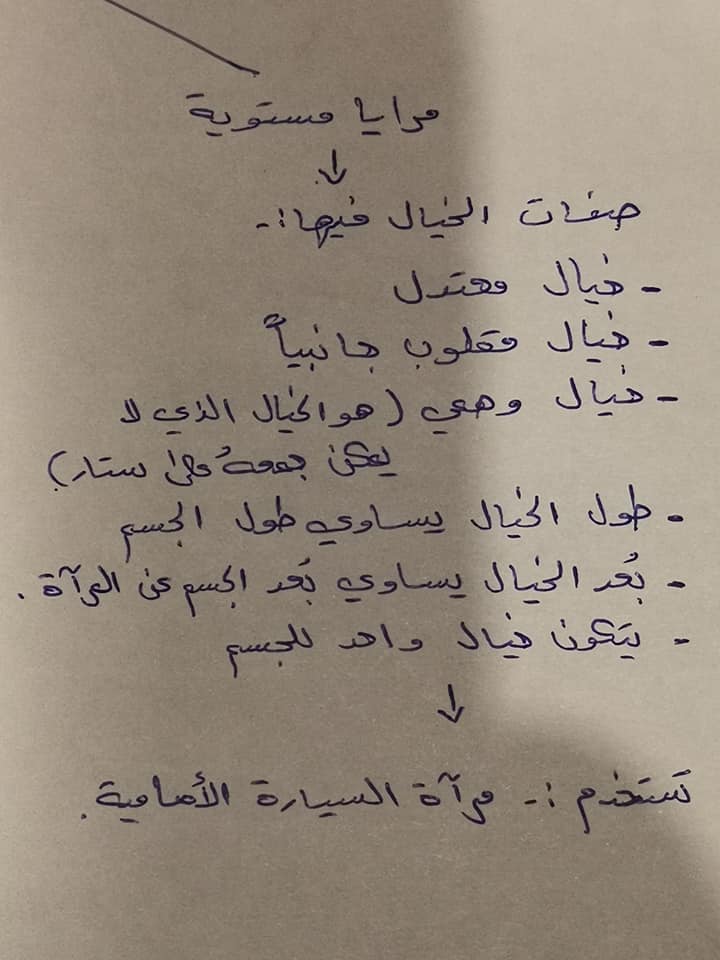 مرايا مستوية
↓
صفات الخيال فيها:-
- خيال معتدل
- خيال مقلوب جانبياً
- خيال وهمي (هو الخيال الذي لا
يمكن جمعهُ على ستار)
- طول الخيال يساوي طول الجسم
- بُعد الخيال يساوي بُعد الجسم عن المرآة.
- يتكون خيال واحد للجسم
↓
تستخدم :- مرآة السيارة الأمامية.